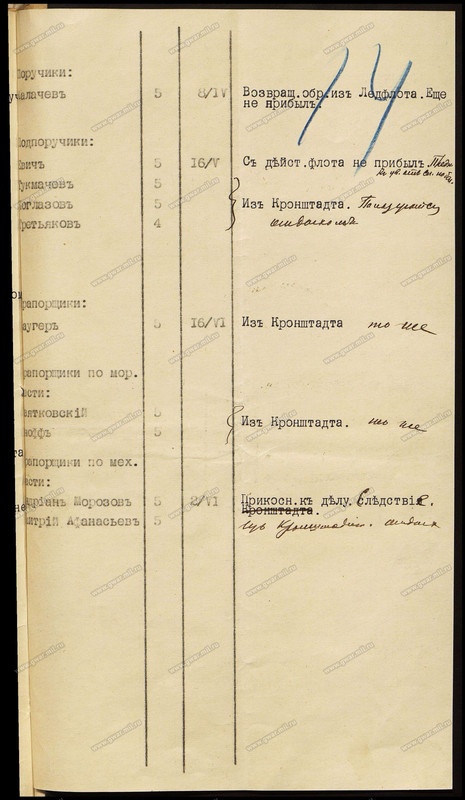 Поручики:
алачевъ 5 8/IV Возвращ.обр.изъ Ледфлота.Еще
не прибылъ.
Подпоручики:
вичъ 5 16/V Съ дѣйст.флота не прибылъ
укмачевъ 5
оглазовъ 5 Изъ Кронштадта.
ретьяковъ 4
рапорщики:
аугеръ 5 16/VI Изъ Кронштадта то же
рапорщики по мор.
асти:
вятковскій 5
оффъ 5 Изъ Кронштадта. то же
рапорщики по мех.
асти:
дріанъ Морозовъ 5 2/VI Прикосн.къ дѣлу. Слѣдствіе.
Кронштадта.
митрій Афанасьевъ 5 изъ
www.gwar.mil.ru